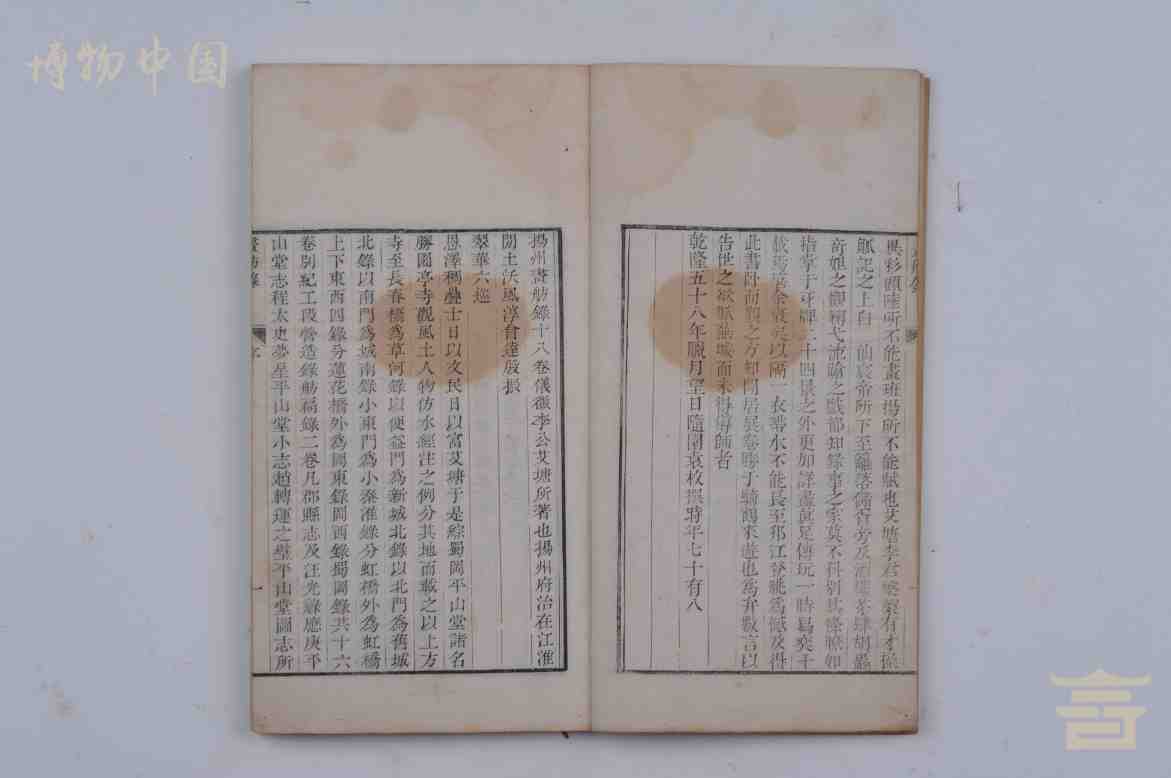 博物中国
顧陸所不能畫班揚所不能賦也艾塘李君槃槃有才
賦記之上自 仙宸帝所下至籬落儲胥旁及酒樓茶肆胡蟲
奇妲之觀鞠弋流蹌之戲都知錄事之家莫不科別其條臚如
指掌于牙牌二十四景之外更加詳盡真足傳玩一時昜奕千
載余衰矣以隔一衣帶水不能長至邗江登眺爲憾及得
此書臥而觀之方知閒居展卷勝于騎鶴來遊也爲弁數言以
告世之欲賦蕪城而未得導師者
乾隆五十八年臘月望日隨園袁枚撰時年七十有八
揚州畫舫錄十八卷儀徵李公艾塘所著也揚州府治在江淮
間土沃風淳會達殷振
翠華六巡
恩澤稠疊士日以文民日以富艾塘于是綜蜀岡平山堂諸名
勝園亭寺觀風土人物仿水經注之例分其地而載之以上方
寺至長春橋爲草河錄以便益門爲新城北錄以北門爲舊城
北錄以南門爲城南錄小東門爲小秦淮錄分虹橋外爲虹橋
上下東西四錄分蓮花橋外爲岡東錄岡西錄蜀岡錄共十六
卷別紀工段營造錄舫扁錄二卷凡郡縣志及汪光祿應庚平
山堂志程太史夢星平山堂小志趙轉運之璧平山堂圖志所
畫舫錄
一